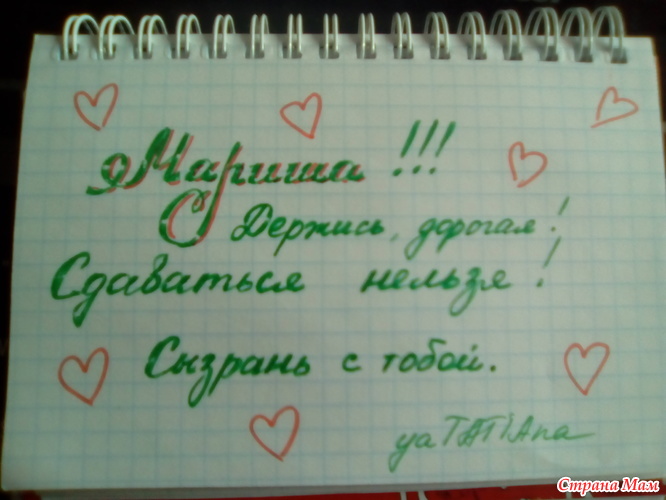 Мариша!!!
Держись, дорогая!
Сдаваться нельзя!
Сызрань с тобой.
yaTATiAna
Страна Мам